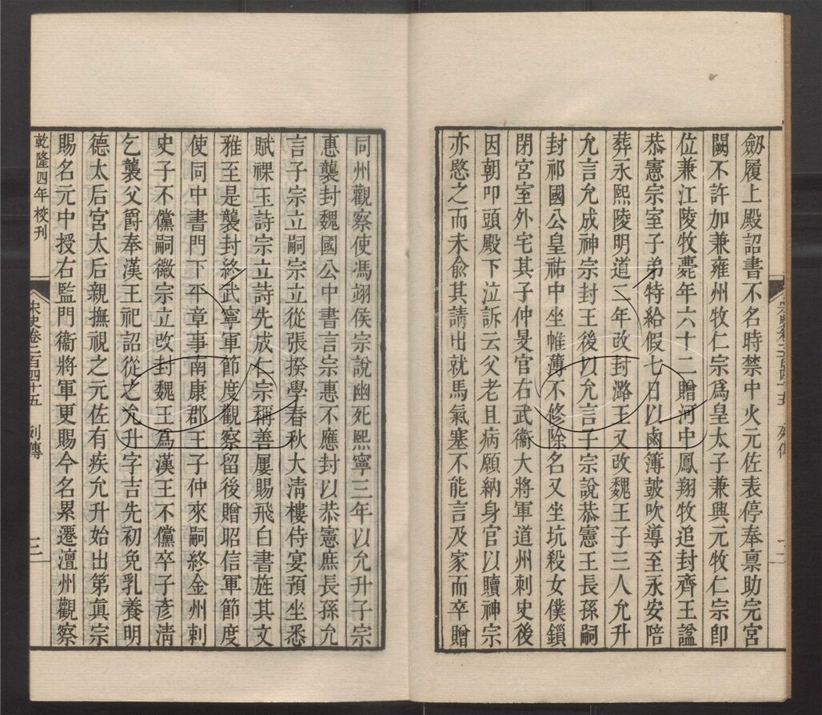 劔履上殿詔書不名時禁中火元佐表停奉稟助完宮
闕不許加兼雍州牧仁宗爲皇太子兼興元牧仁宗即
位兼江陵牧薨年六十二贈河中鳳翔牧追封齊王諡
恭憲宗室子弟特給假七日以鹵簿鼓吹導至永安陪
葬永熙陵明道二年改封潞王又改魏王子三人允升
允言允成神宗封王後以允言子宗說恭憲王長孫嗣
封祁國公皇祐中坐帷薄不修除名又坐坑殺女僕鎖
閉宮室外宅其子仲旻官右武衞大將軍道州刺史後
因朝叩頭殿下泣訴云父老且病願納身官以贖神宗
亦愍之而未兪其請出就馬氣塞不能言及家而卒贈
宋史卷二百四十五 列傳 二
同州觀察使馮翊侯宗說幽死熙寧三年以允升子宗
惠襲封魏國公中書言宗惠不應封以恭憲庶長孫允
言子宗立嗣宗立從張揆學春秋大清樓侍宴預坐悉
賦祼玉詩宗立詩先成仁宗稱善屢賜飛白書旌其文
雅至是襲封終武寧軍節度觀察留後贈昭信軍節度
使同中書門下平章事南康郡王子仲來嗣終金州刺
史子不儻嗣徽宗立改封魏王爲漢王不儻卒子彥清
乞襲父爵奉漢王祀詔從之允升字吉先初免乳養明
德太后宮太后親撫視之元佐有疾允升始出第眞宗
賜名元中授右監門衞將軍更賜今名累遷澶州觀察
乾隆四年校刊 宋史卷二百四十五 列傳 三